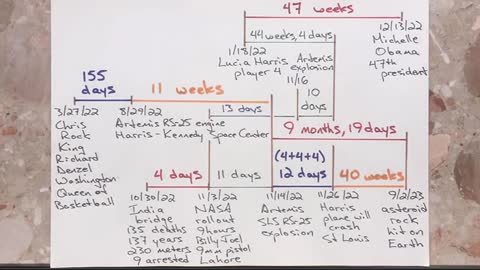 47 weeks
44 weeks, 4 days
1/18/22
Lucia Harris
player 4
Artemis
explosion
11/16
12/13/22
Michelle
Obama
47th
president
155
days
11 weeks
13 days
10
days
3/27/22
Chris
Rock
King
Richard
Denzel
Washington
Queen of
Basketball
8/29/22
Artemis RS-25 engine
Harris-Kennedy Space Center
9 months, 19 days
(4+4+4)
4 days
11 days
12 days
40 weeks
10/30/22
India
bridge
135 deaths
137 years
230 meters
9 arrested
11/3/22
NASA
rollout
9 hours
Billy Joel
9mm pistol
Lahore
11/14/22
Artemis
SLS RS-25
explosion
11/26/22
Harris
plane will
crash
St Louis
9/2/23
asteroid
rock
hit on
Earth